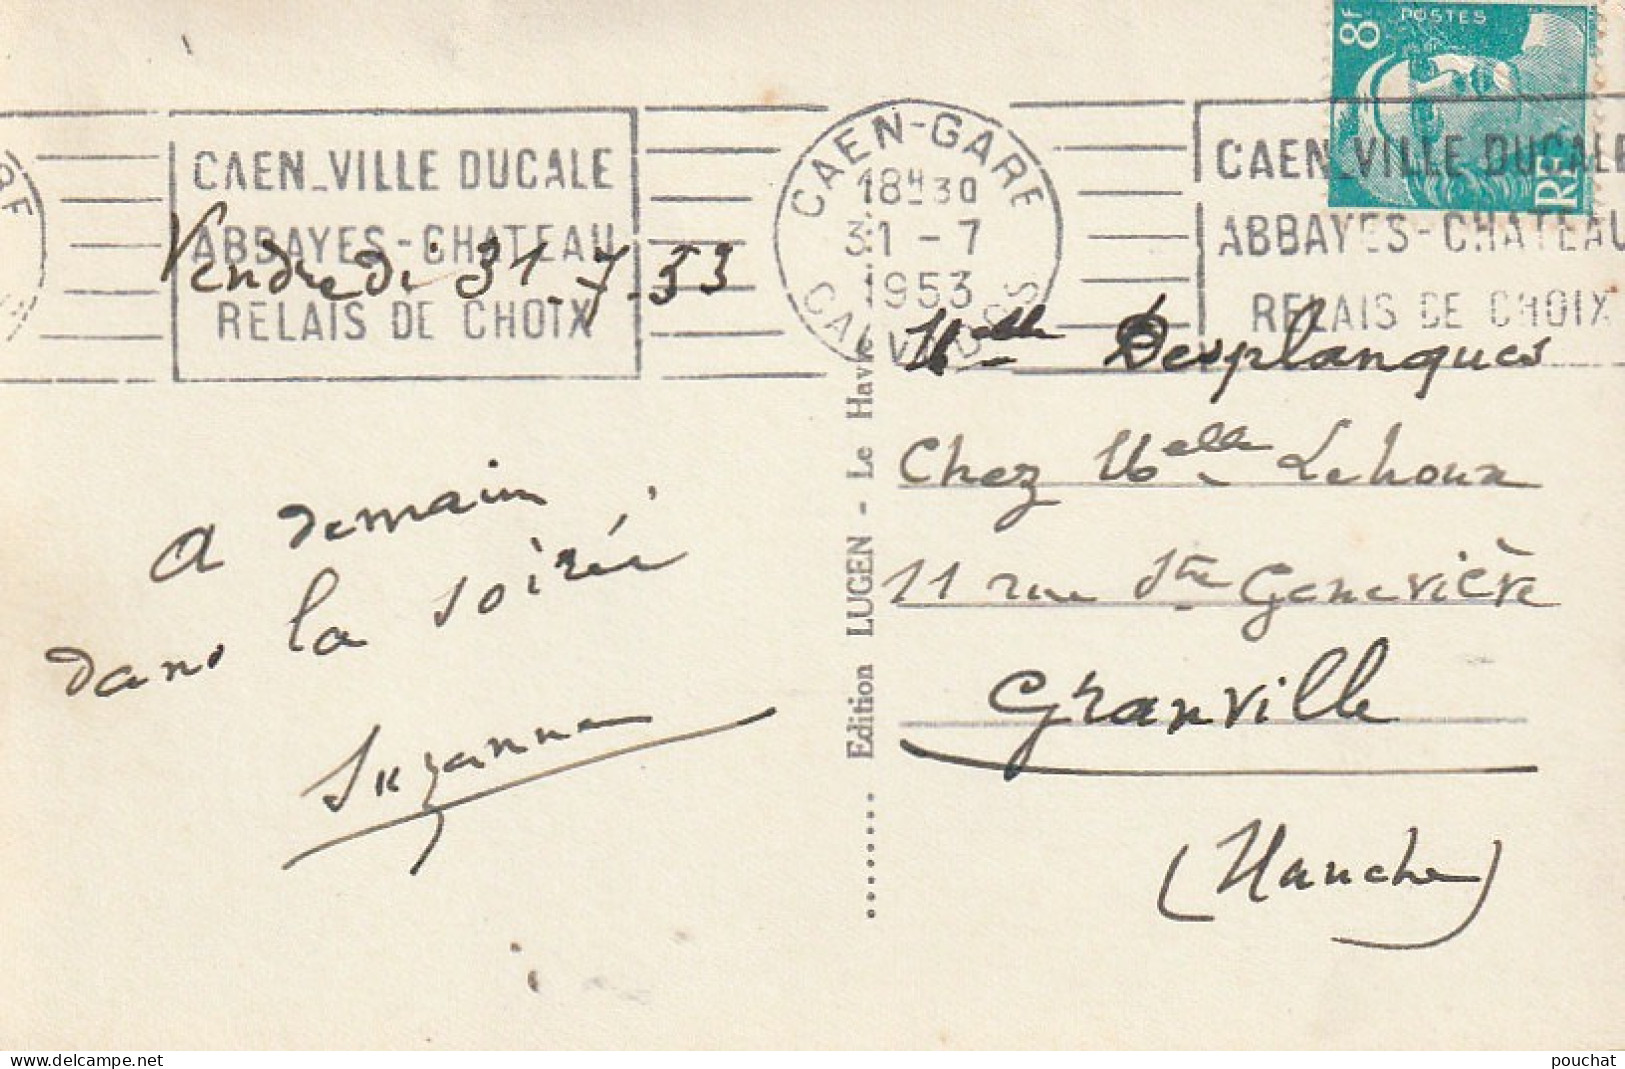 8F POSTES
RF
CAEN-VILLE DUCALE
ABBAYES-CHATEAU
RELAIS DE CHOIX
CAEN-GARE
18H30
31-7
1953
CALVADOS
CAEN-VILLE DUCALE
ABBAYES-CHATEAU
RELAIS DE CHOIX
RF
Vendredi 31.7.53
A demain
dans la soirée
Suzanne
Edition LUGEN - Le Havre
Melle Desplanques
Chez Melle Lehoux
11 rue Ste Geneviève
Granville
(Manche)
www.delcampe.net
pouchat